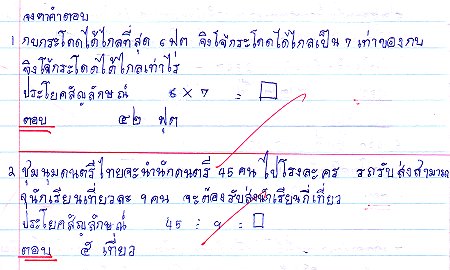 จงหาคำตอบ
1. กบกระโดดได้ไกลที่สุด ๖ ฟุต จิงโจ้กระโดดได้ไกลเป็น 7 เท่าของกบ
จิงโจ้กระโดดได้ไกลเท่าไร
ประโยคสัญลักษณ์ 6 × 7 = □
ตอบ ๔๒ ฟุต
2. ชุมนุมดนตรีไทยจะนำนักดนตรี 45 คน ไปโรงละคร รถรับส่งสามารถ
จุนักเรียนเที่ยวละ ๙ คน จะต้องรับส่งนักเรียนกี่เที่ยว
ประโยคสัญลักษณ์ 45 ÷ 9 = □
ตอบ ๕ เที่ยว